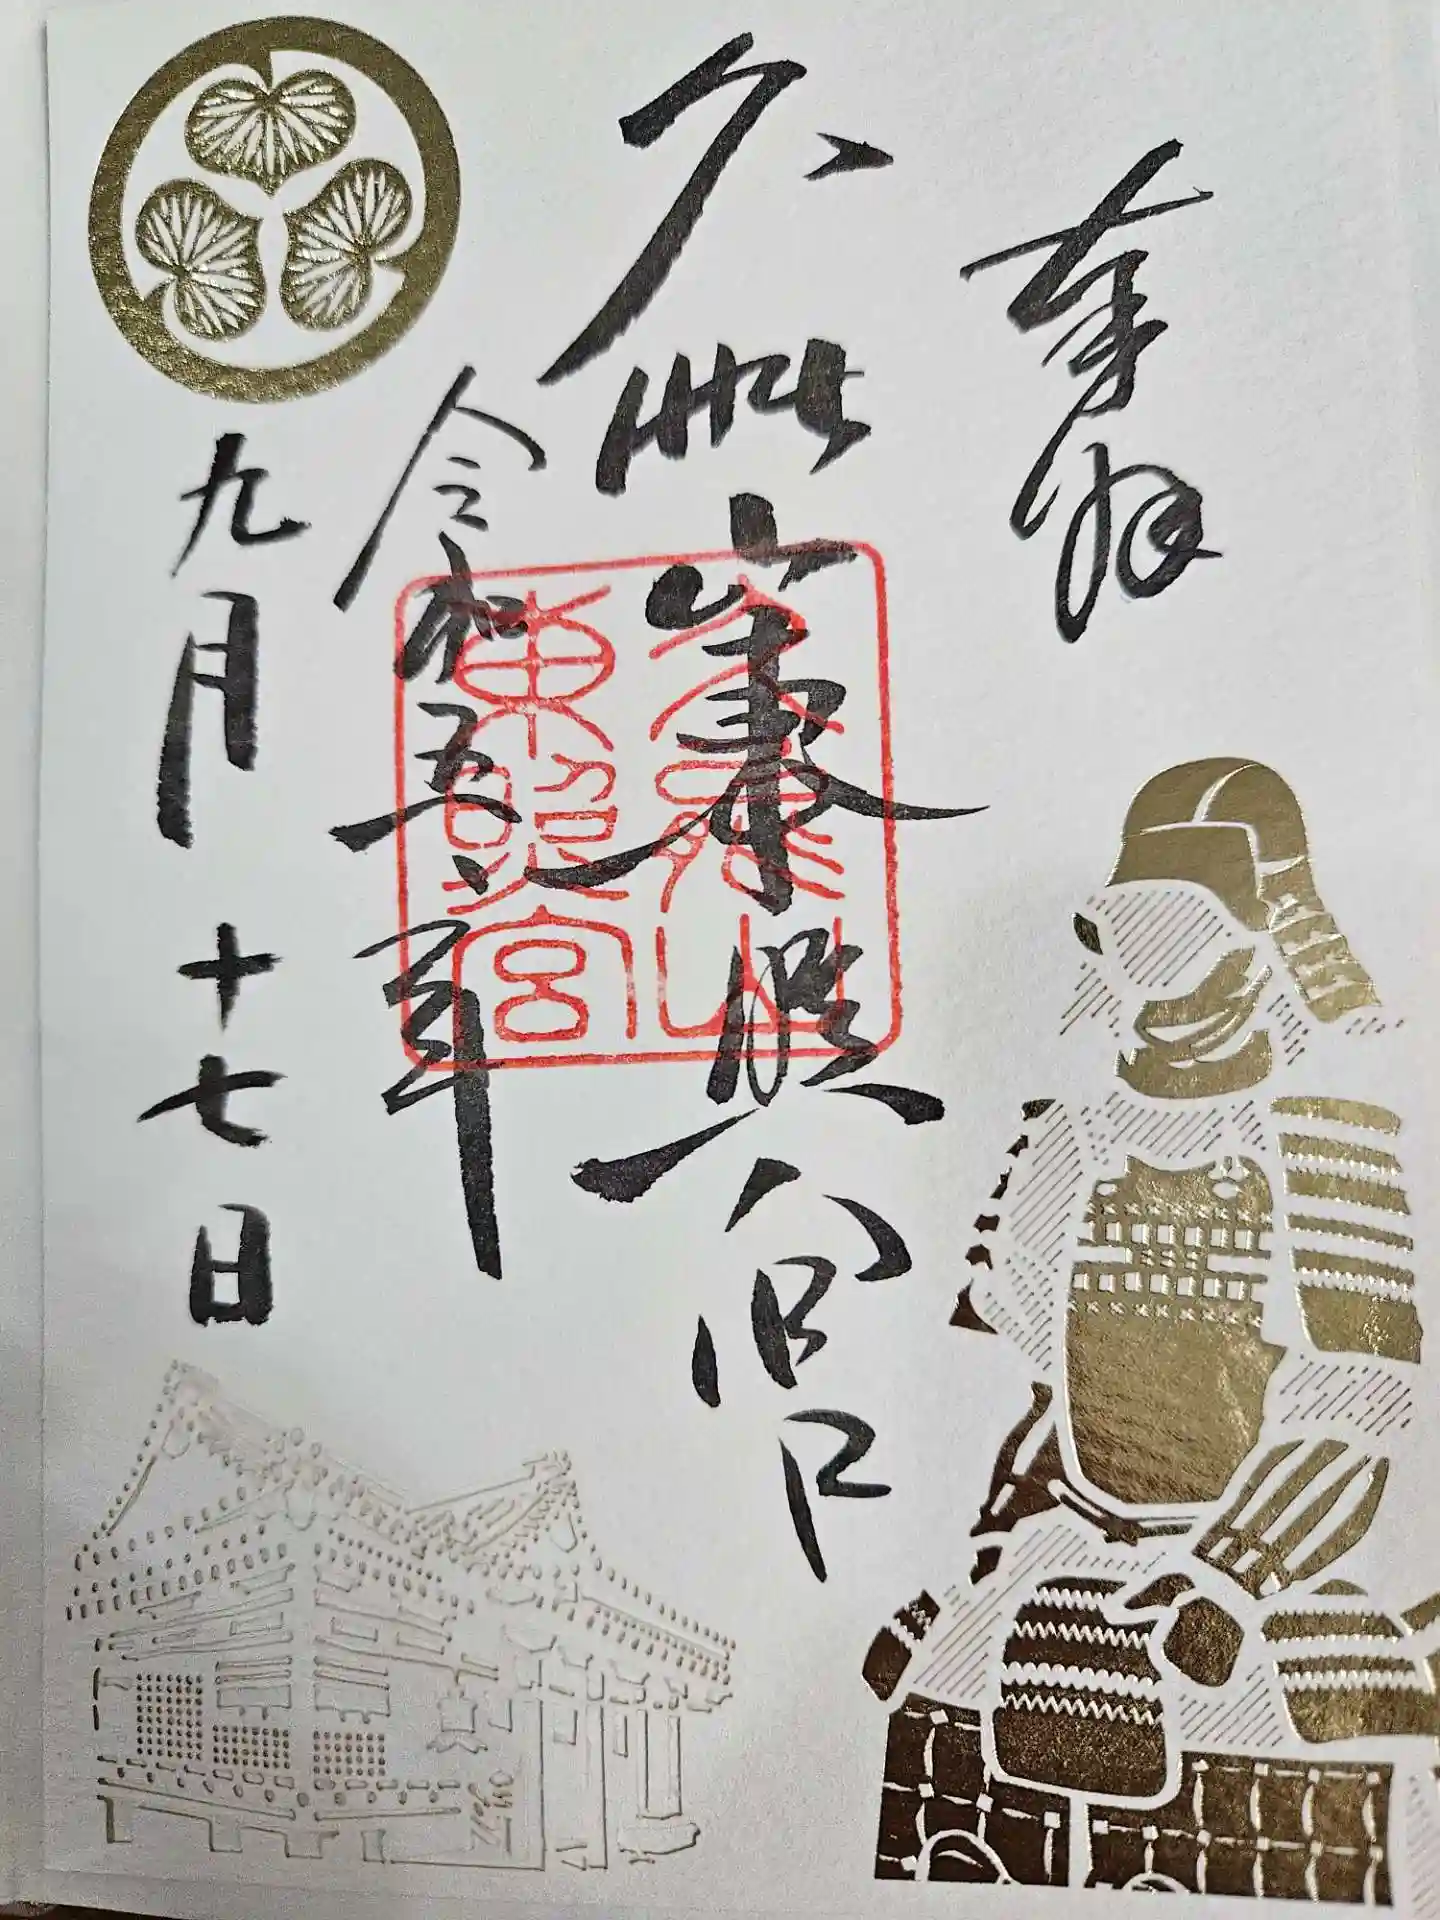 奉拝
久能山東照宮
久能山
東照宮
令和五年
九月十七日